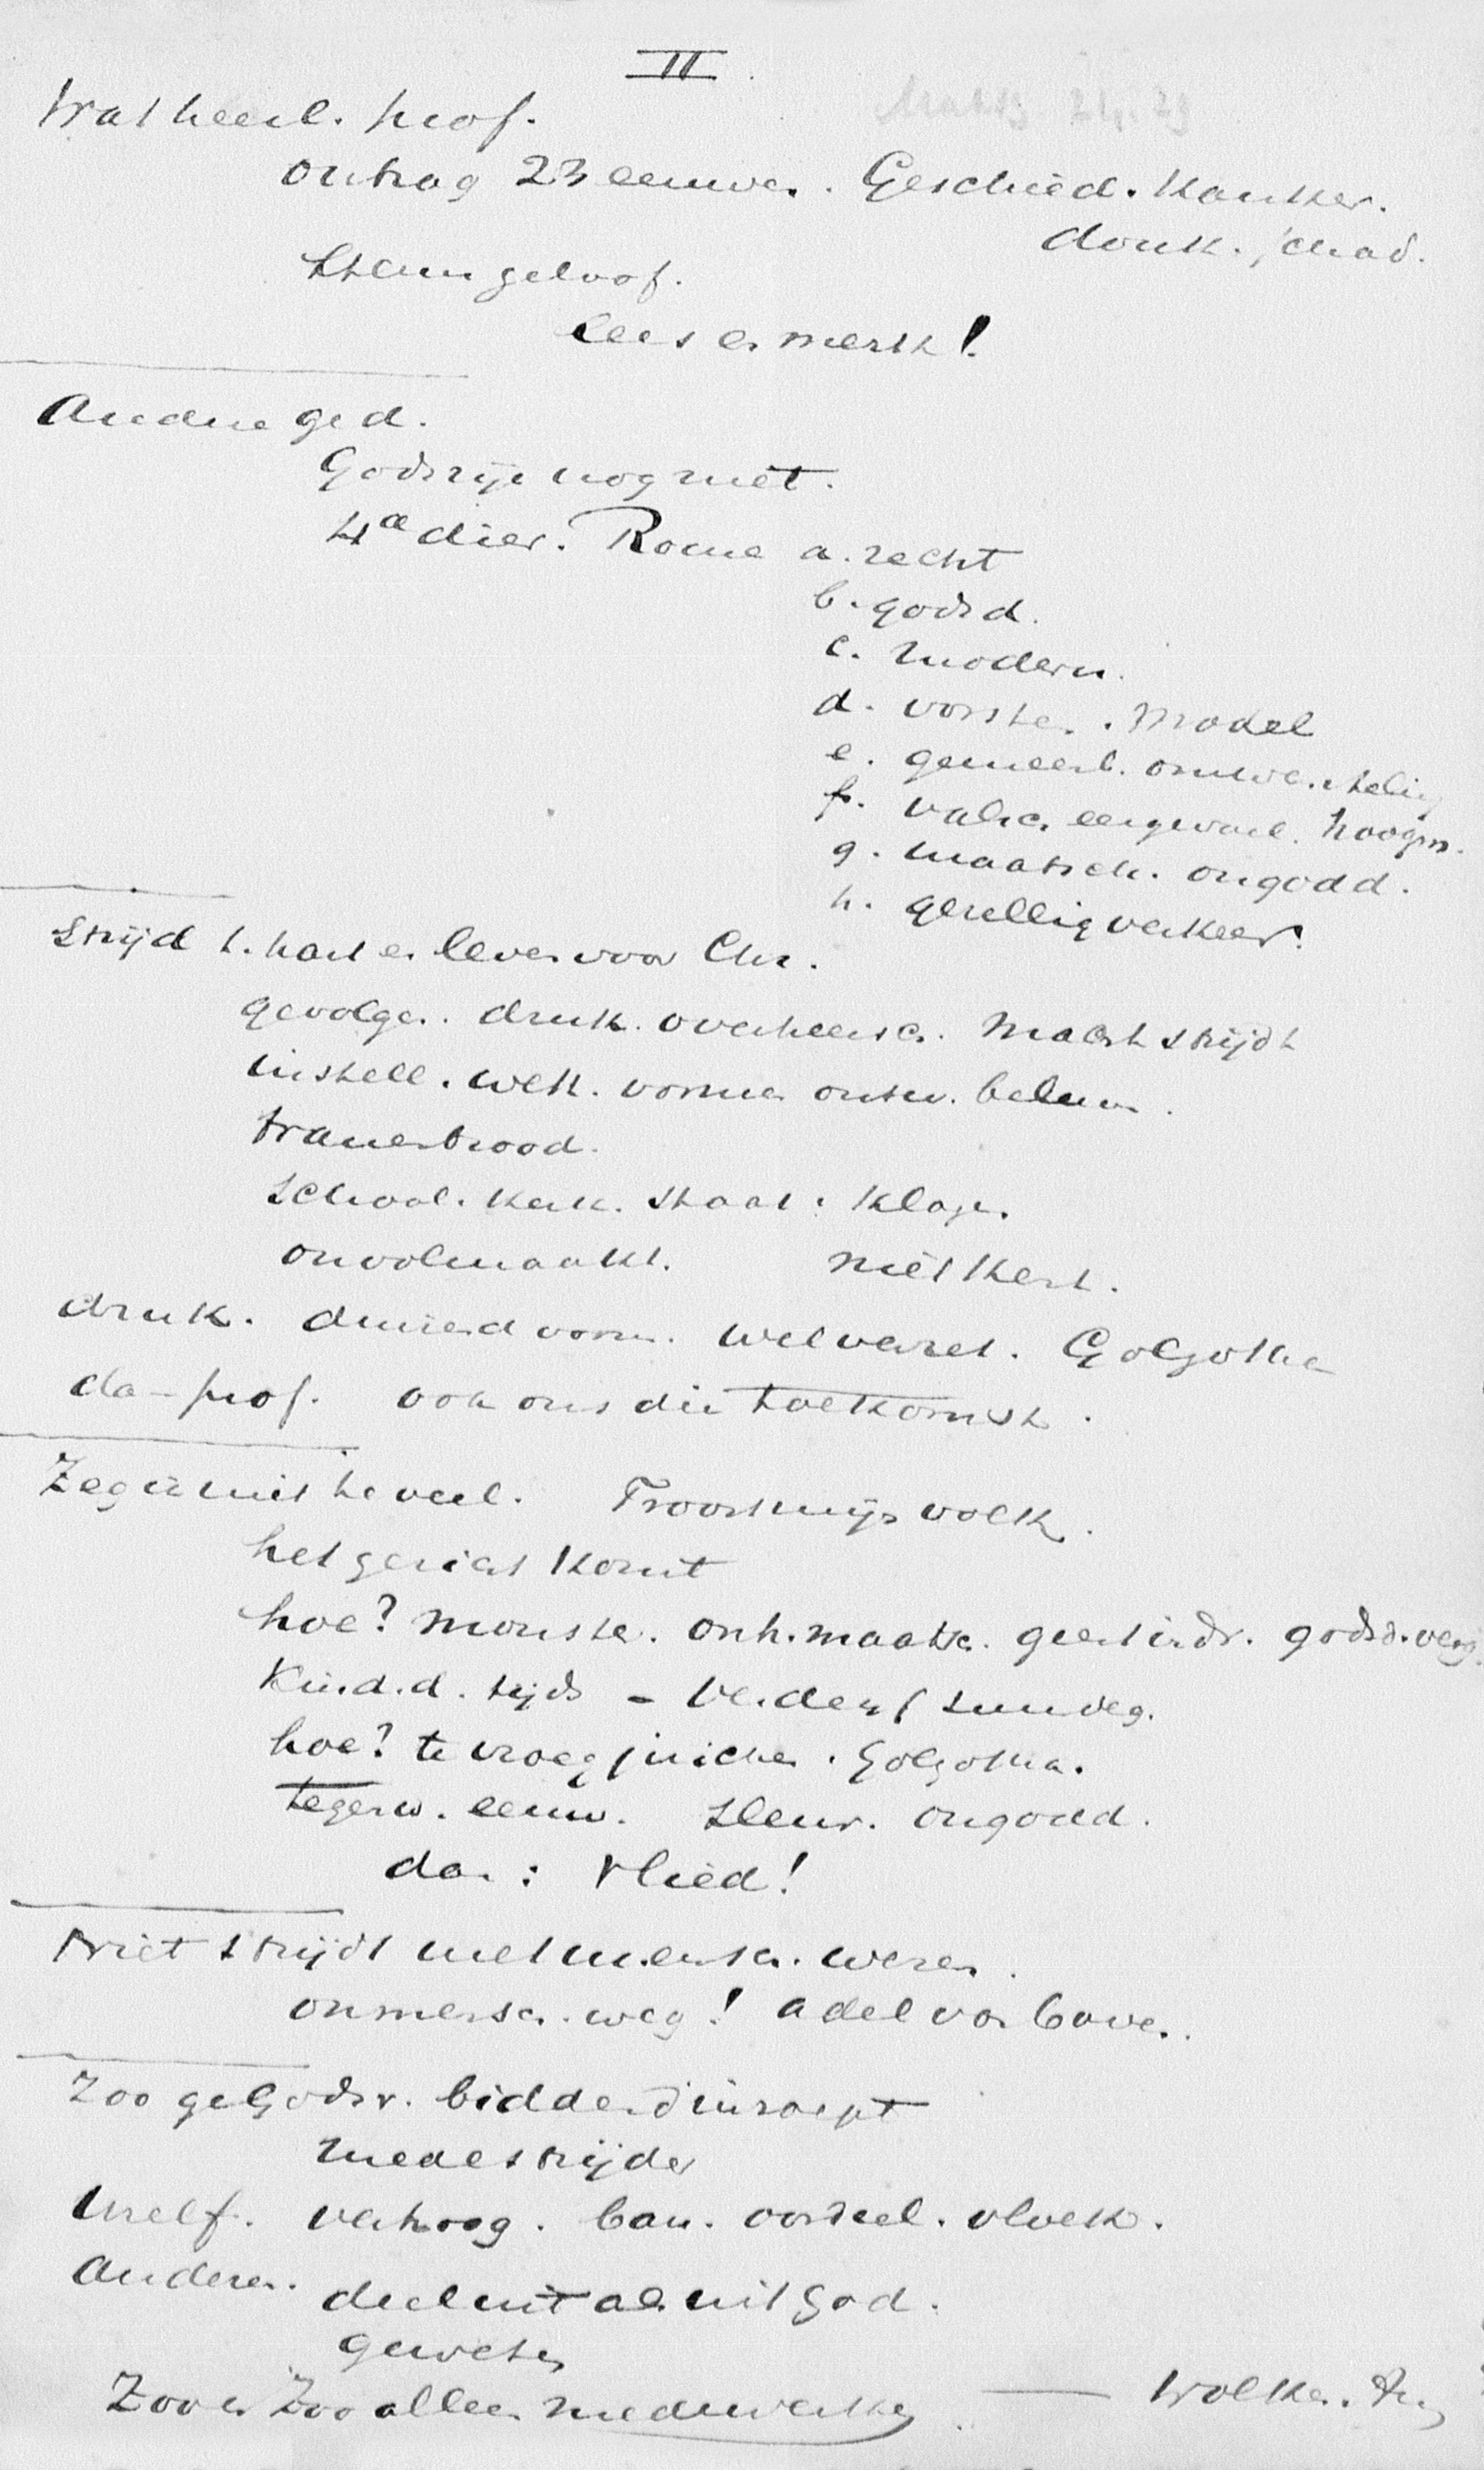 II
Wat heerl. prof.
ontrag 23 eeuwen. Geschied. Kanker.
donk. schad.
Steun geloof.
lees en merk!
Andere ged.
Godsrijk nog niet.
4de dier. Rome a. recht
b. godsd.
c. modern.
d. vorsten. Model
e. gemeent. omwenteling
f. valsch eergevoel. hoogm.
g. maatsch. ongodd.
h. gezellig verkeer.
Strijd t. hart en leven voor Chr.
gevolgen. druk. overheersch. Macht strijdt
instell. wett. vormen ontw. belem.
tranenbrood.
School. Kerk. Staat: Klagen.
onvolmaakt. niet Kerk.
druk. duizend vorm. Welvaart. Golgotha
dan prof. ook ons die toekomst.
Zeg er niet te veel. Troost mijn volk.
het gericht komt
hoe? monster. onh. maatsch. geest indr. godsd. verg.
Kind. d. tijds - verderf
hoe? te vroeg juichen. Golgotha.
tegenw. eeuw. sleur. ongodd.
dan: vlied!
Niet strijdt met mensch. wezen.
onmensch. weg! adel van boven.
Zoo ge Godsr. biddend inroept
medestrijder
Uzelf. verhoog. ban. oordeel. vloek.
Anderen. deel uit als uit God.
geweten
Zoo en Zoo alleen medewerken — Wolken.